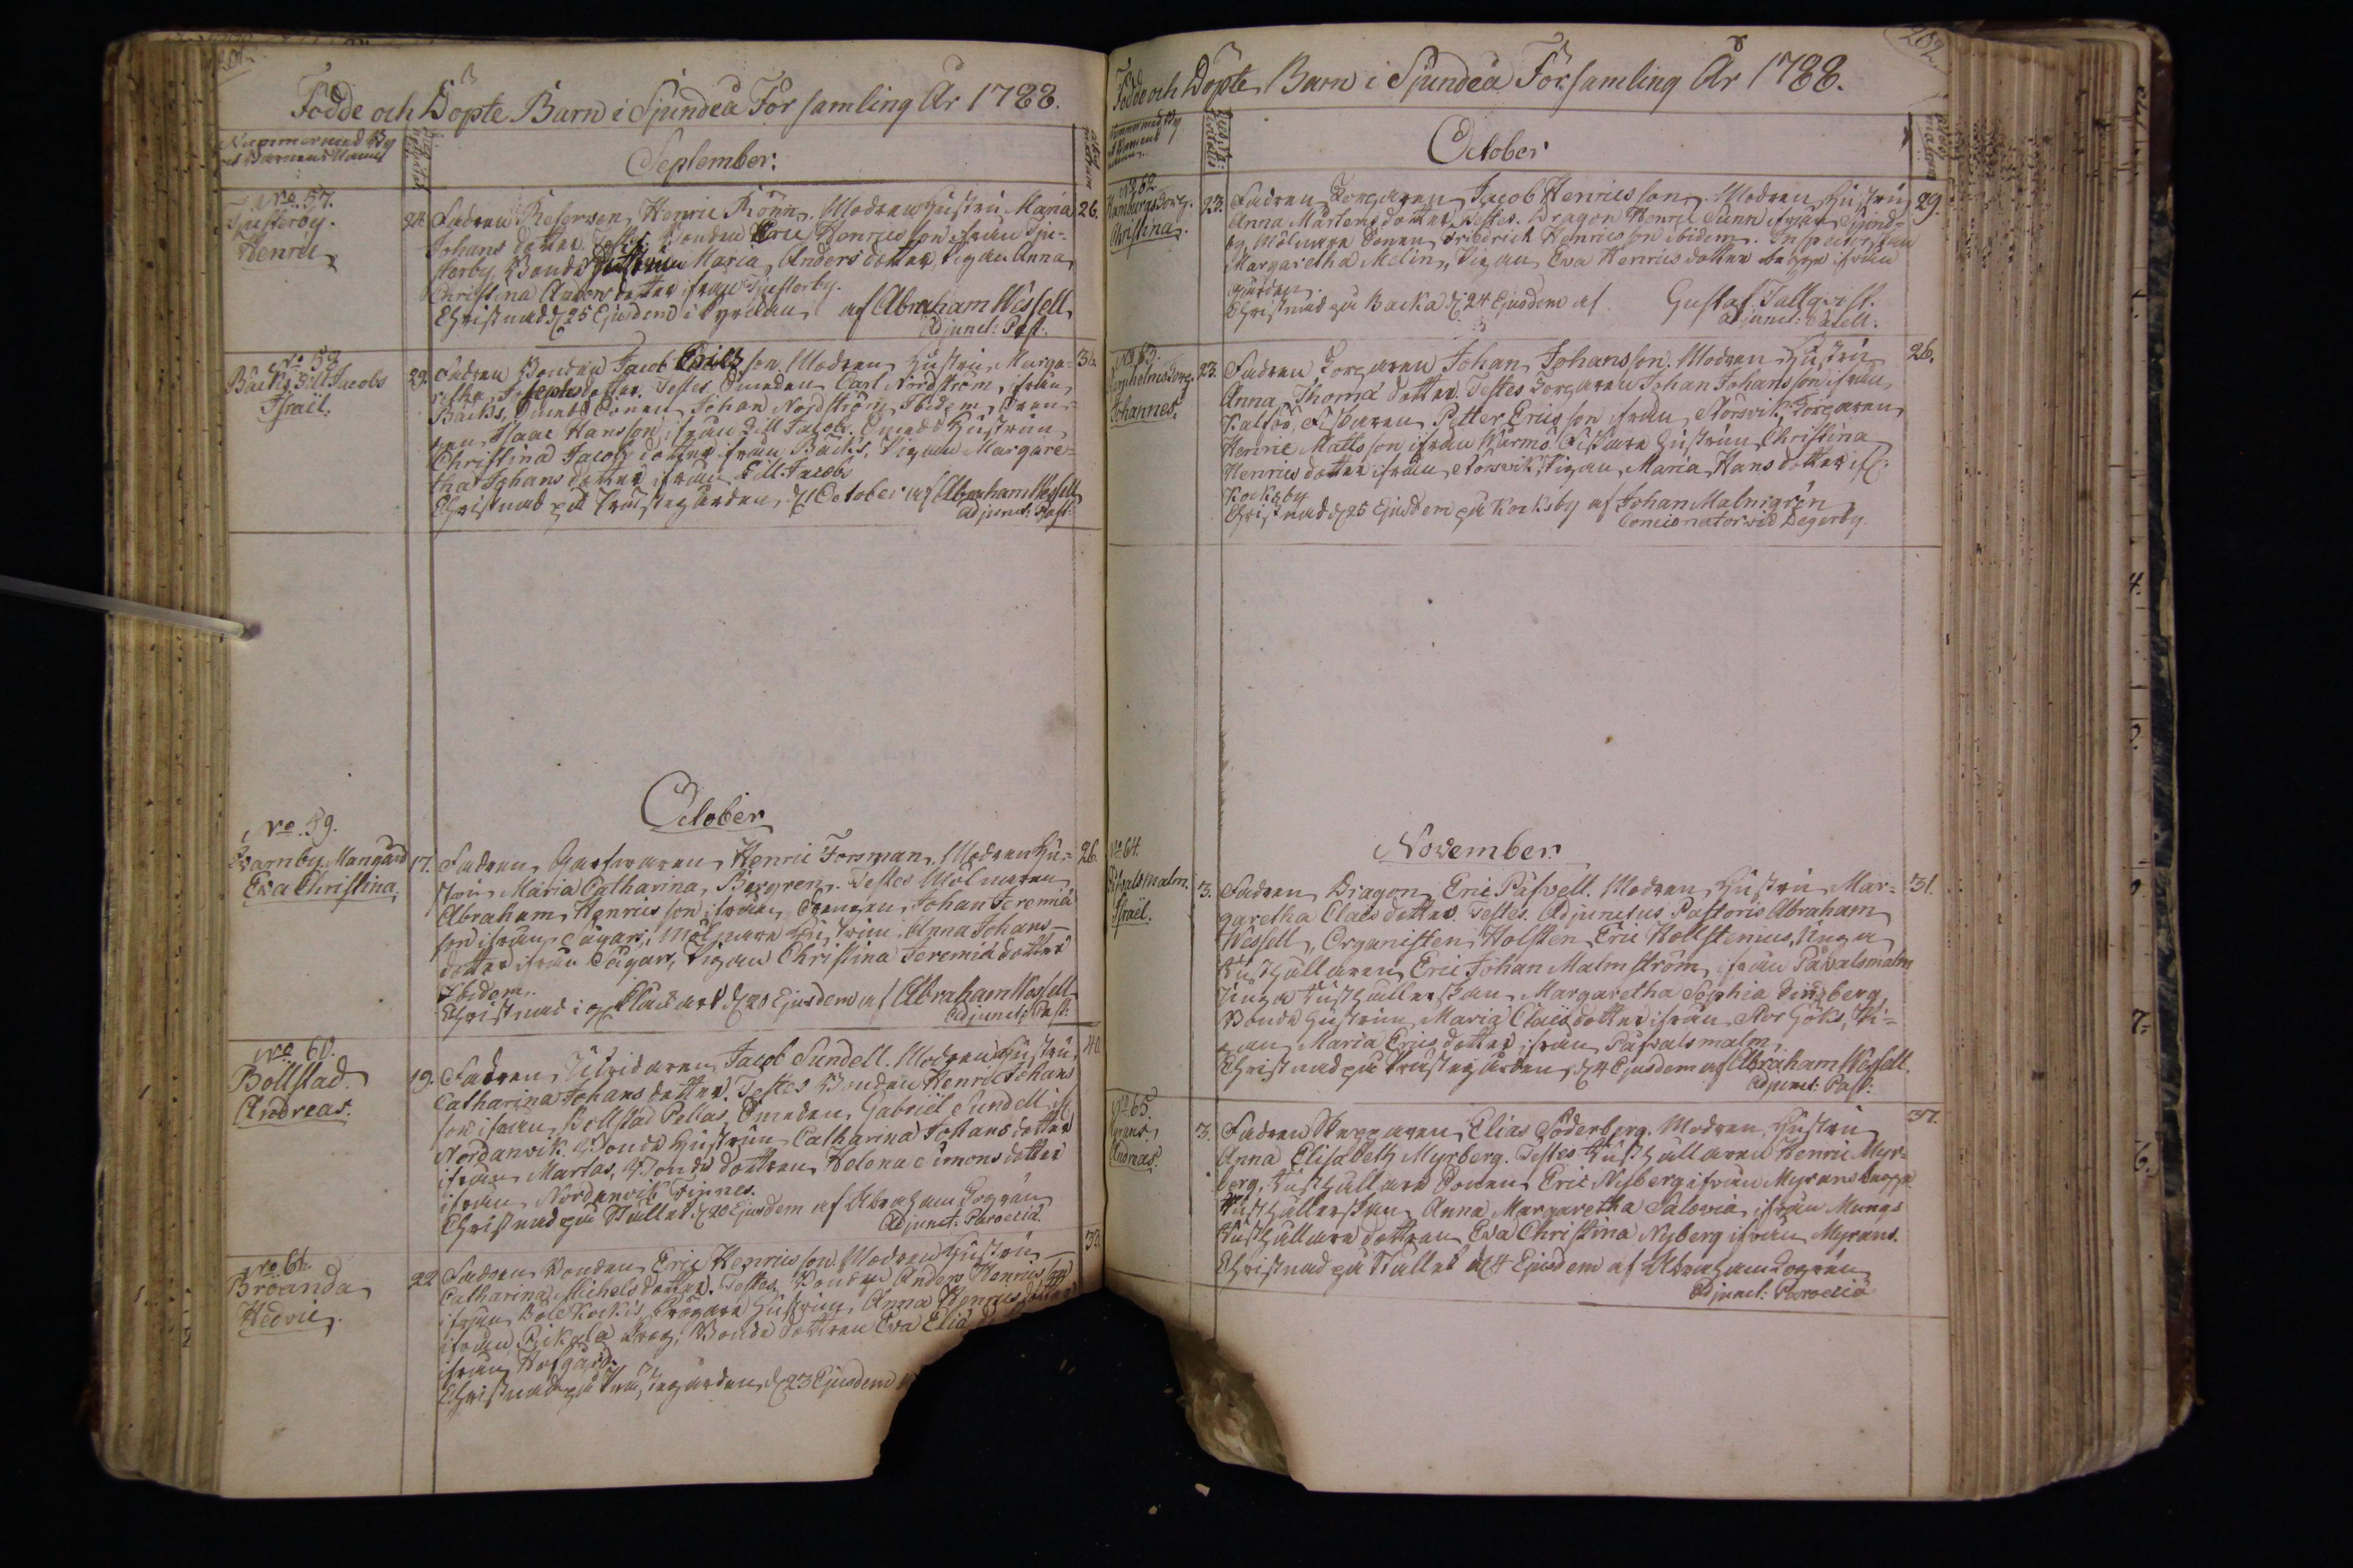 201.
Födde och Döpte Barn i Sjundeå Församling År 1788.
Nummer med By
och Barnens Namn
September:
No. 57.
Tjusterby.
Henric
24. Fadren Henric Rönn, Modren Hustru Maria 26.
Johans dotter. Testes Bonden Eric Henricsson ifrån Tju-
sterby, Bonde Maria Anders dotter, Pigan Anna
Christina Anders dotter ifrån Tjusterby.
Christnad d 25 Ejusdem i Kyrckan af Abraham Wessell
Adjunct: Past:
No. 58
Bäcks Lill Jacobs
Israël.
29. Fadren Bonden Jacob Ericsson. Modren Hustru Marga- 36.
retha Josephsdotter. Testes Smeden Carl Nordström, ifrån
Bäcks, Smeds Sonen Johan Nordström Ibidem, Dren-
gen Isaac Hansson ifrån Lill Jacobs. Smeds Hustrun
Christina Jacobs dotter ifrån Bäcks, Pigan Margare-
tha Johans dotter ifrån Lill Jacobs
Christnad på Prästegården, d 1 October af Abraham Wessell
Adjunct: Past:
October
No. 59.
Qvarnby Mangård
Eva Christina
17. Fadren Garfvaren Henric Forsman, Modren Hu- 26.
stru Maria Catharina Bergren. Testes Mölnaren
Abraham Henricsson ifrån Drengen Johan Jeremiæ
son ifrån Sågars, Mölnare Hustrun Anna Johans
dotter ifrån Sågars, Pigan Christina Jeremiæ dotter
Ibidem.
Christnad i d 20 Ejusdem af Abraham Wessell
Adjunct: Past:
No. 60.
Böllstad
Andreas.
19. Fadren Utridaren Jacob Sundell. Modren Hustru 40
Catharina Johans dotter. Testes Bonden Henric Johans
son ifrån Böllstad Pellas, Smeden Gabriel Sundell if:
Nordanvik. Bonde Hustrun Catharina Johans dotter
ifrån Martas, Bonde dottren Helena Simons dotter
ifrån Nordanvik Finnes.
Christnad på Stället d 20 Ejusdem af Abraham Forgren
Adjunct: Paroecia.
No. 61.
Bröanda
Hedvic
22 Fadren Bonden Eric Henricsson. Modren Hustru 33.
Catharina Michels dotter. Testes Bonden Anders Henricsson
ifrån Böle Kockis, Hustrun Anna Henrics dotter
ifrån Pickala Krog, Bonde dottren Eva Eliæ
ifrån Hofgård.
Christnad på Prästegården, d 23 Ejusdem
202
Födde och Döpte Barn i Sjundeå Församling År 1788.
October
No 62
Christina.
23. Fadren Torparen Jacob Henricsson. Modren Hustru 29.
Anna Mårtens dotter. Testes. Dragon Henric Sunn ifrån Sjund-
by, Mölnare Sonen Friedrich Henricsson ibidem. Inspectorskan
Margaretha Melin, Pigan Eva Henrics dotter begge ifrån
gården.
Christnad på Backa d 24 Ejusdem af Gustaf Tallqvist.
Adjunct: Sacell:
No 63.
Johannes.
23. Fadren Torparen Johan Johansson. Modren Hustru 26.
Anna Thomæ dotter. Testes Torparen Johan Johansson ifrån
Kalföö, Fiskaren Petter Ericsson ifrån Störsvik, Torparen
Henric Mattsson ifrån Wärmö, Fiskare Hustrun Christina
Henrics dotter ifrån Störsvik, Pigan Maria Hans dotter if:
Kocksby
Christnad d 25 Ejusdem på Kocksby af Johan Malmgrén
Concionator vid Degerby.
November.
No. 64.
Påvalsmalm.
Israël.
3. Fadren Dragon Eric Påfvell. Modren Hustru Mar- 31.
garetha Claes dotter. Testes. Adjunctus Pastoris Abraham
Wessell, Organisten Holsten, Eric Hollstenius, Unga
Rusthållaren Eric Johan Malmström, ifrån Påvalsmalm
Unga Rusthållerskan Margaretha Sophia Lindberg,
Bonde Hustrun Maria Claes dotter ifrån Stor Göks, Pi-
gan Maria Erics dotter ifrån Påfvalsmalm
Christnad på Prästegården, d 4 Ejusdem af Abraham Wessell.
Adjunct: Past:
No 65.
Myrans
Andreas.
3. Fadren Elias Söderberg. Modren Hustru 37.
Anna Elisabeth Myrberg. Testes Rusthållaren Henric Myr-
berg, Rusthållare Sonen Eric Nyberg ifrån Myrans begge
Rusthållerskan Anna Margaretha Salovia ifrån Mungs
Rusthållare dottren Eva Christina Nyberg ifrån Myrans.
Christnad på Stället d 4 Ejusdem af Abraham Forgren
Adjunct: Paroecia